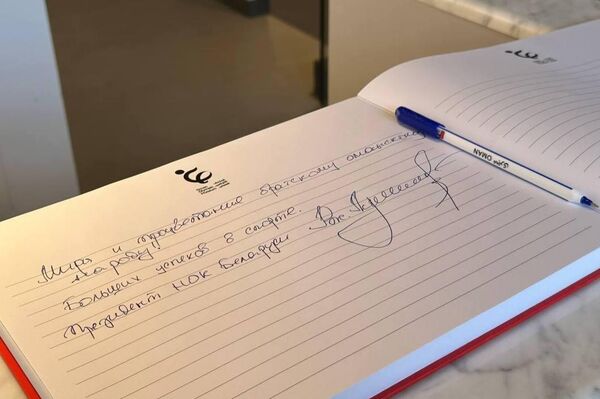 Мира и процветания братскому оманскому
народу!
Больших успехов в спорте.
Президент НОК Беларуси
OMAN عمان